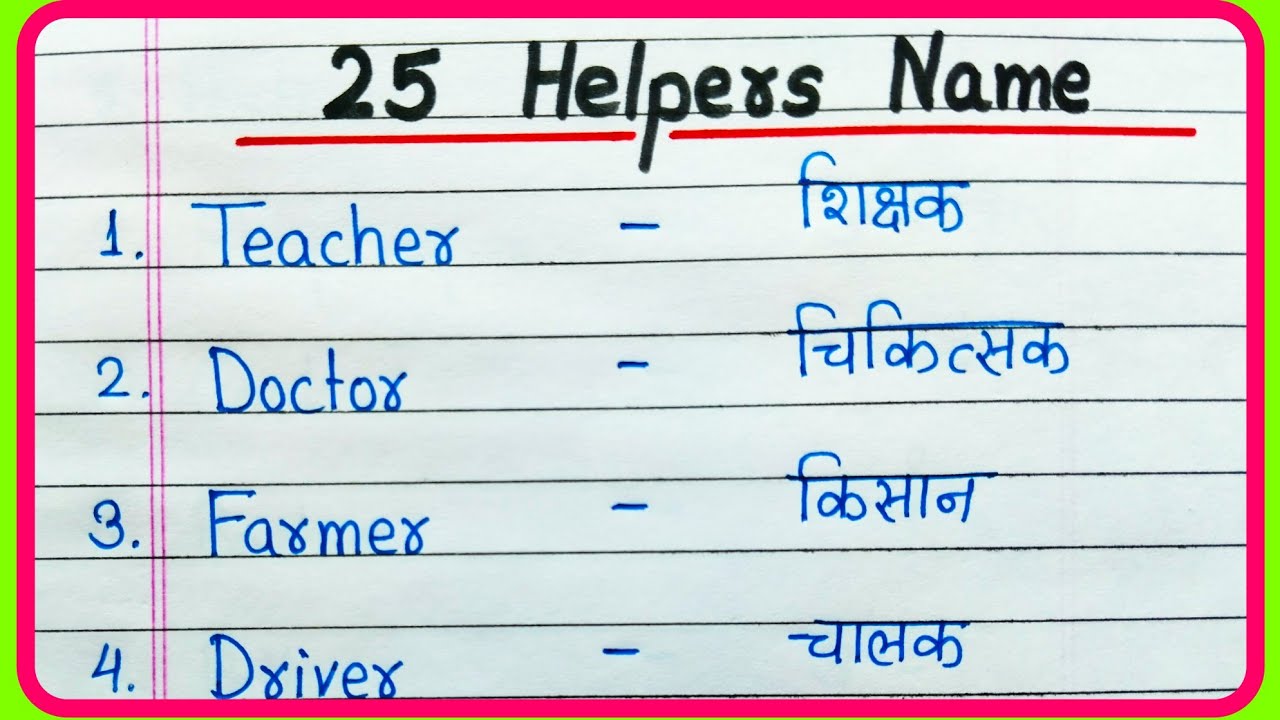 25 Helpers Name
1. Teacher - शिक्षक
2. Doctor - चिकित्सक
3. Farmer - किसान
4. Driver - चालक